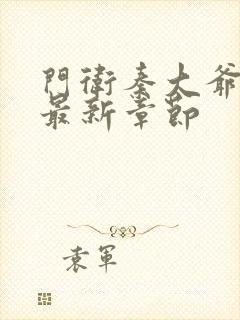 門衛秦大爺
最新章節
袁軍